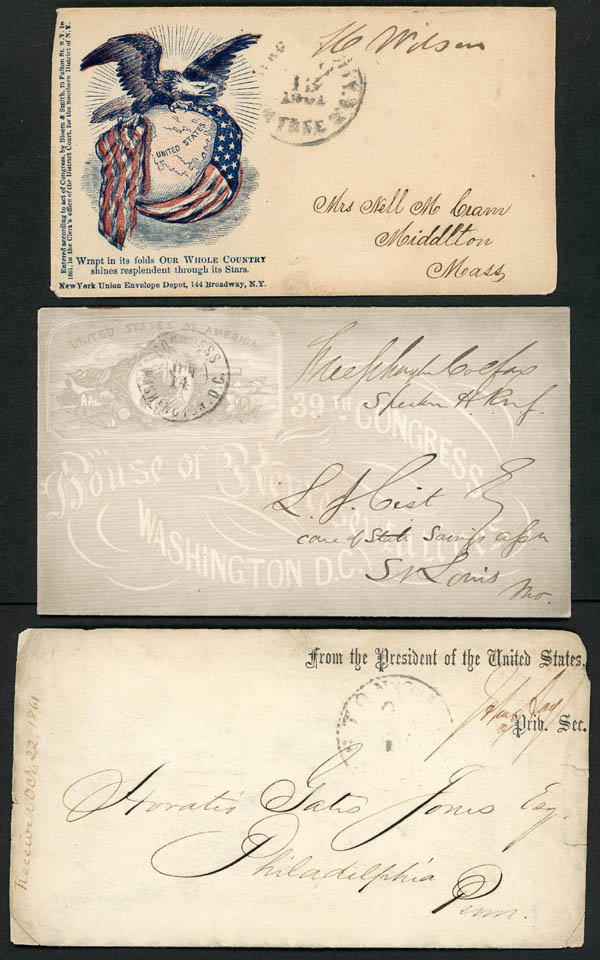 Entered according to act of Congress, by Bloom & Smith, 73 Fulton St. N.Y. in
1861, in the Clerk's office of the District Court, for the Southern District of N.Y.
UNITED STATES
Wrapt in its folds OUR WHOLE COUNTRY
shines resplendent through its Stars.
New York Union Envelope Depot, 144 Broadway, N.Y.
H Wilson
1861
FREE
Mrs Nell M Cram
Middlton
Mass
UNITED STATES OF AMERICA
CONGRESS
JUN
14
WASHINGTON, D.C.
39TH CONGRESS
House of Representatives
WASHINGTON D.C.
Free Schuyler Colfax
Speaker H. Rep.
L. J. Cist Esq
care of State Savings assn
St Louis
Mo.
From the President of the United States,
John Hay
Priv. Sec.
Horatio Gates Jones Esq.
Philadelphia
Penn.
Received Oct. 22, 1861